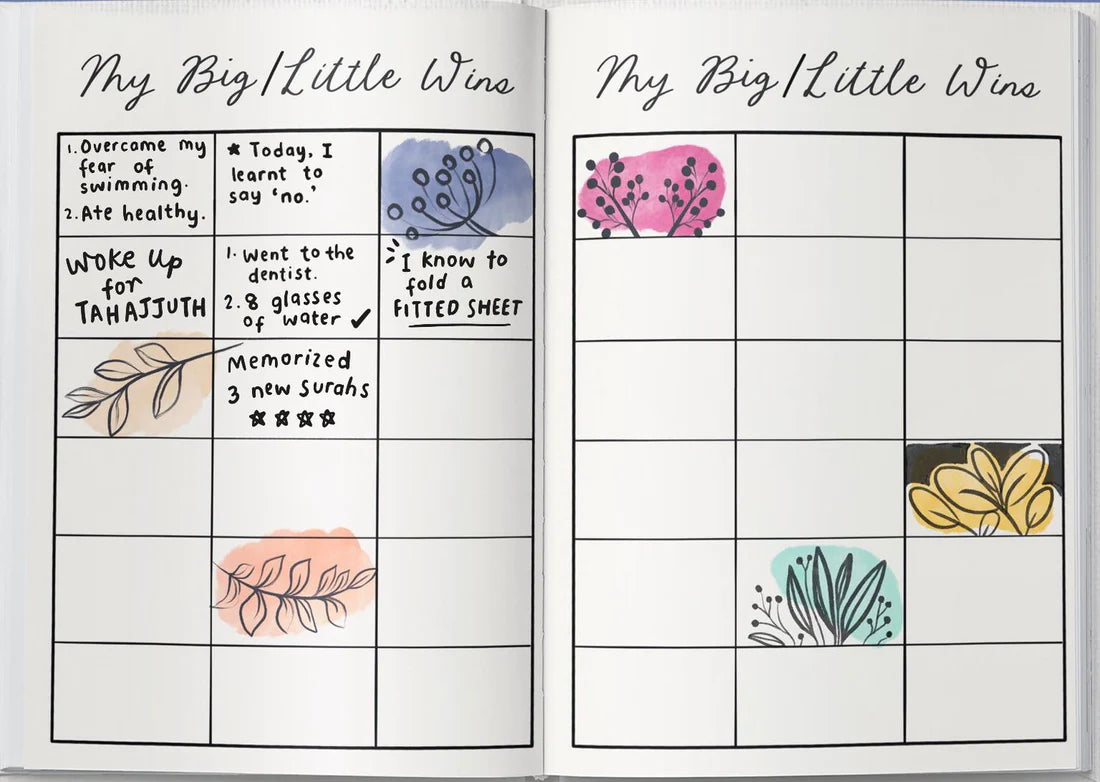 My Big/Little Wins
1. Overcame my
fear of
swimming.
2. Ate healthy.
★ Today, I
learnt to
say 'no.'
Woke up
for
TAHAJJUTH
1. Went to the
dentist.
2. 8 glasses
of water ✓
I know to
fold a
FITTED SHEET
Memorized
3 new Surahs
☆☆☆☆
My Big/Little Wins